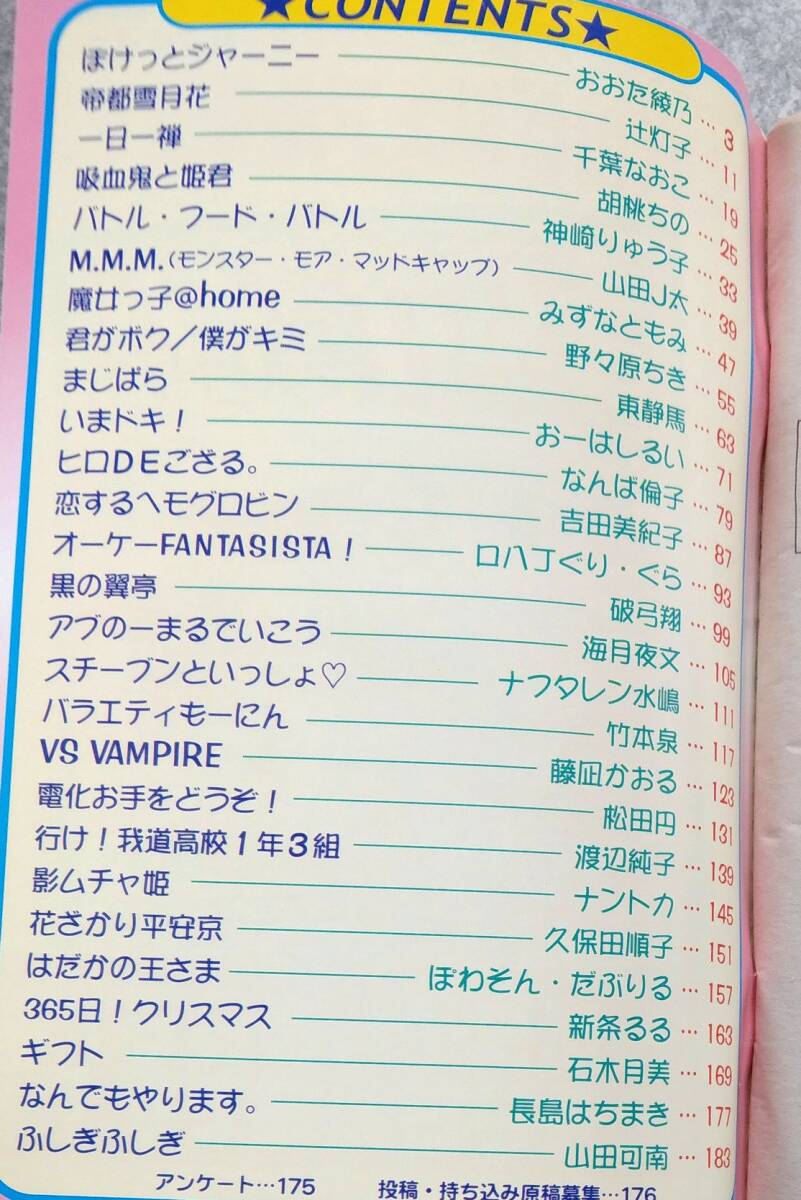 ★CONTENTS★
ぽけっとジャーニー おおた綾乃…3
帝都雪月花 辻灯子…11
一日一禅 千葉なおこ…19
吸血鬼と姫君 胡桃ちの…25
バトル・フード・バトル 神崎りゅう子…33
M.M.M.(モンスター・モア・マッドキャップ) 山田J太…39
魔女っ子@home みずなともみ…47
君がボク／僕がキミ 野々原ちき…55
まじぱら 東静馬…63
いまドキ！ おーはしるい…71
ヒロDEござる。 なんば倫子…79
恋するヘモグロビン 吉田美紀子…87
オーケーFANTASISTA！ ロ八丁ぐり・ぐら…93
黒の翼亭 破弓翔…99
アブのーまるでいこう 海月夜文…105
スチーブンといっしょ♡ ナフタレン水嶋…111
バラエティもーにん 竹本泉…117
VS VAMPIRE 藤凪かおる…123
電化お手をどうぞ！ 松田円…131
行け！我道高校1年3組 渡辺純子…139
影ムチャ姫 ナントカ…145
花ざかり平安京 久保田順子…151
はだかの王さま ぽわそん・だぶりる…157
365日！クリスマス 新条るる…163
ギフト 石木月美…169
なんでもやります。 長島はちまき…177
ふしぎふしぎ 山田可南…183
アンケート…175 投稿・持ち込み原稿募集…176